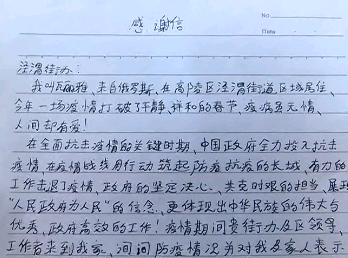 感谢信
No.
Date
泾渭街办：
我叫瓦丽雅、来自俄罗斯、在高陵区泾渭街道区域居住、
今年一场疫情打破了平静、祥和的春节、疫病虽无情、
人间却有爱！
在全面抗击疫情的关键时期、中国政府全力投入抗击
疫情、在疫情战线用行动筑起防疫抗疫的长城、有力的
工作击退了疫情、政府的坚定决心、共克时艰的担当、
"人民政府为人民"的信念、更体现出中华民族的伟大与
优秀、政府高效的工作！疫情期间贵街办及区领导、
工作者来到我家、问询防疫情况并对我及家人表示